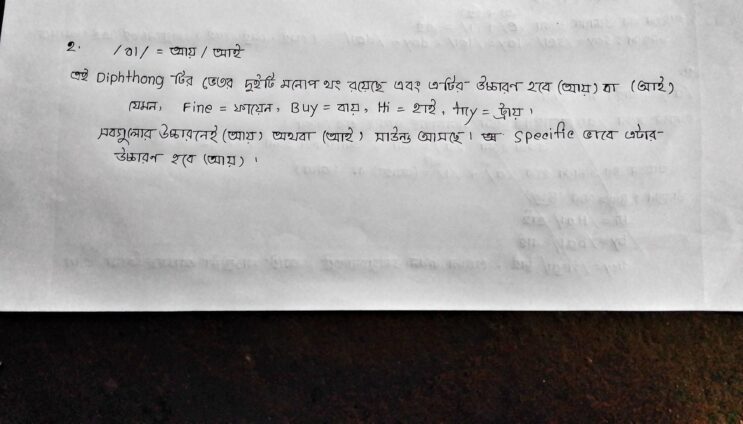 ২. /aI/ = আয়/আই
এই Diphthong টির ভেতর দুইটি মনোপ থং রয়েছে এবং এটির উচ্চারন হবে (আয়) বা (আই)
যেমন, Fine = ফায়েন, Buy = বায়, Hi = হাই, try = ট্রায়।
সবগুলোর উচ্চারনেই (আয়) অথবা (আই) সাউন্ড আসছে। Specific ভাবে এটার-
উচ্চারন হবে (আয়)।